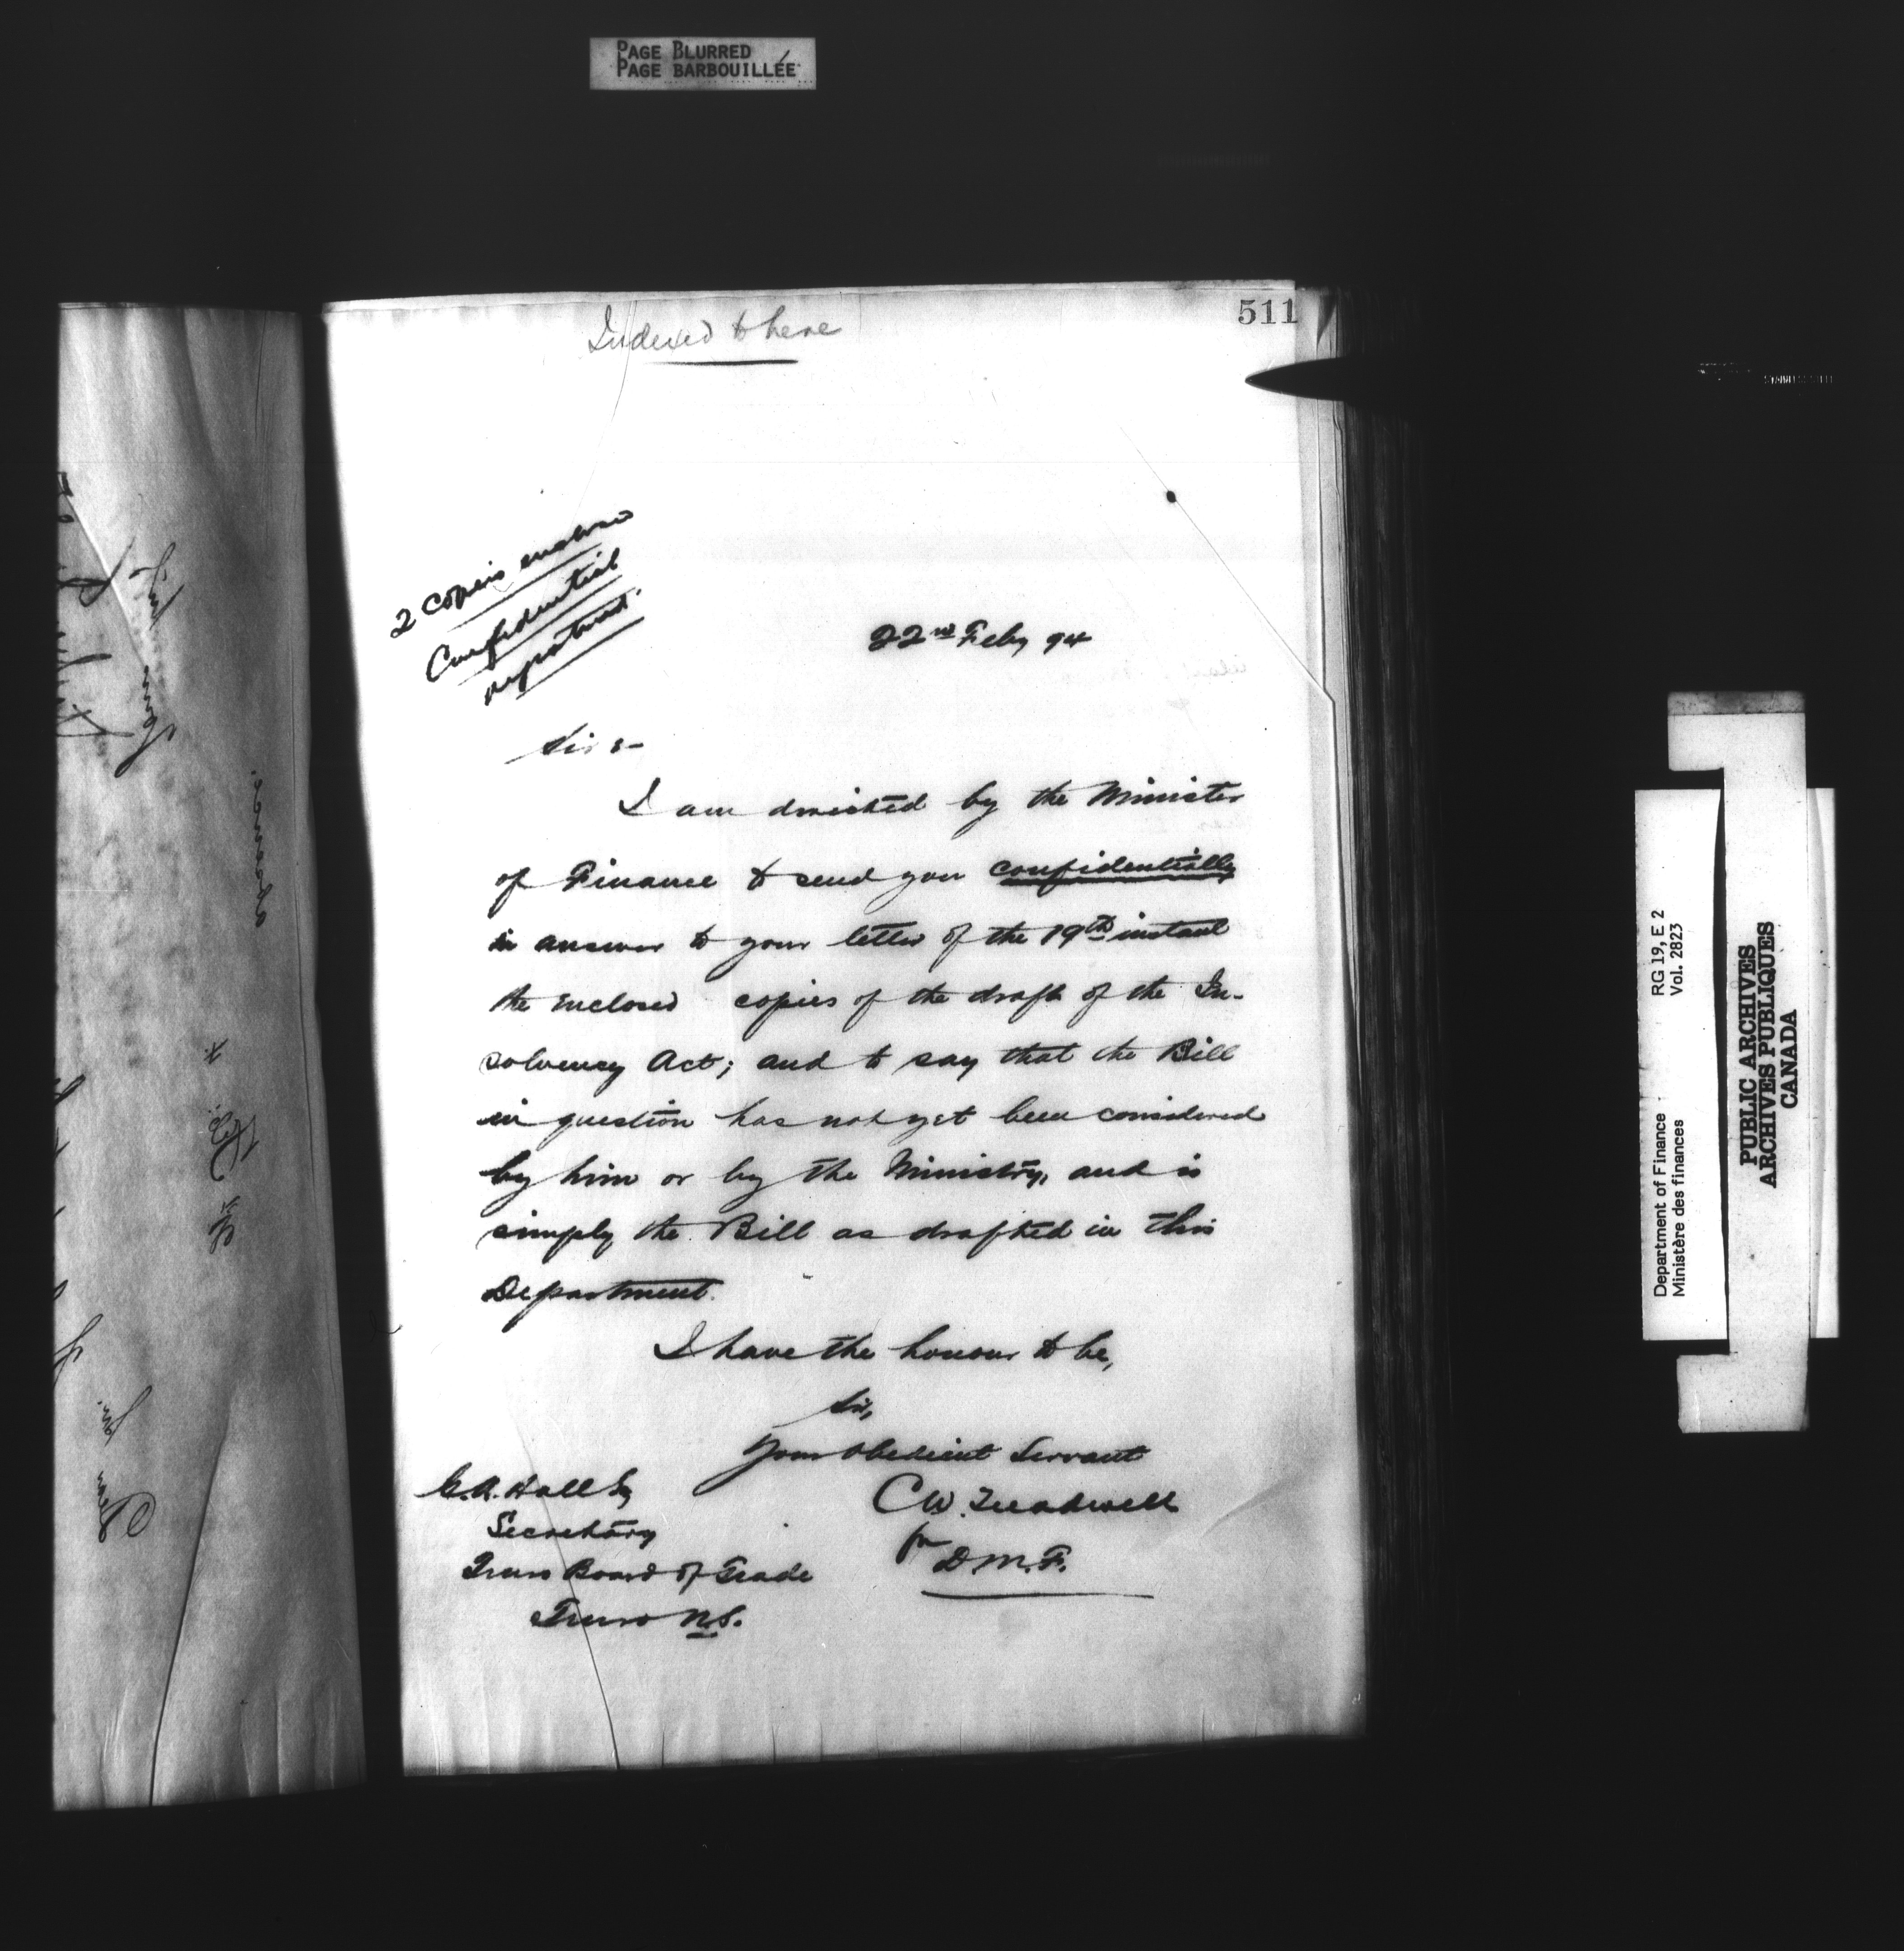 PAGE BLURRED
PAGE BARBOUILLÉE
511
Indexed to here
2 Copies enclosed
Confidential
22nd Feby 94
Sir :-
I am directed by the Minister
of Finance to send you confidentially
in answer to your letter of the 19th instant
the enclosed copies of the draft of the In-
solvency Act; and to say that the Bill
in question has not yet been considered
by him or by the Ministry, and is
simply the Bill as drafted in this
Department.
I have the honour to be,
Sir,
Your Obedient Servant
C W. Treadwell
for D.M.F.
G.A. Hall Esq
Secretary
Truro Board of Trade
Truro N.S.
Department of Finance RG 19, E 2
Ministère des finances Vol. 2823
PUBLIC ARCHIVES
ARCHIVES PUBLIQUES
CANADA